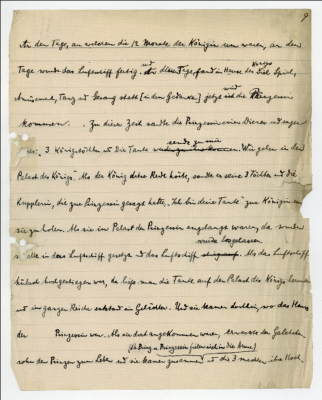 9
An dem Tage, an welchem die 12 Monate der Königin um waren, an dem
Tage wurde das Luftschiff fertig. An dem Tage fand im Hause des Königs Spiel,
Amüsement, Tanz und Gesang statt [in dem Gedanken] jetzt wird die Prinzessin
kommen. Zu dieser Zeit sandte die Prinzessin einen Diener und sagen
3 Königstöchter und die Tante sende zu mir. Wir gehen in den
Palast des Königs. Als der König diese Rede hörte, sandte er seine 3 Töchter und die
Kupplerin, die zur Prinzessin gesagt hatte, "Ich bin deine Tante" zur Königin um
sie zu holen. Als sie im Palast der Prinzessin angelangt waren, da wurden
wurde losgelassen.
sie alle in dem Luftschiff gesetzt und das Luftschiff Als das Luftschiff
hübsch hochgestiegen war, da liess man die Tante auf den Palast des Königs
und im ganzen Reiche Und sie kamen dorthin, wo das Haus
der Prinzessin war. Als sie dort angekommen waren, erweckte den Geliebten
(der Prinz u Prinzessin fielen sich in die Arme)
den Prinzen zum Leben und sie kamen zusammen und die 3 machten ihre Hoch